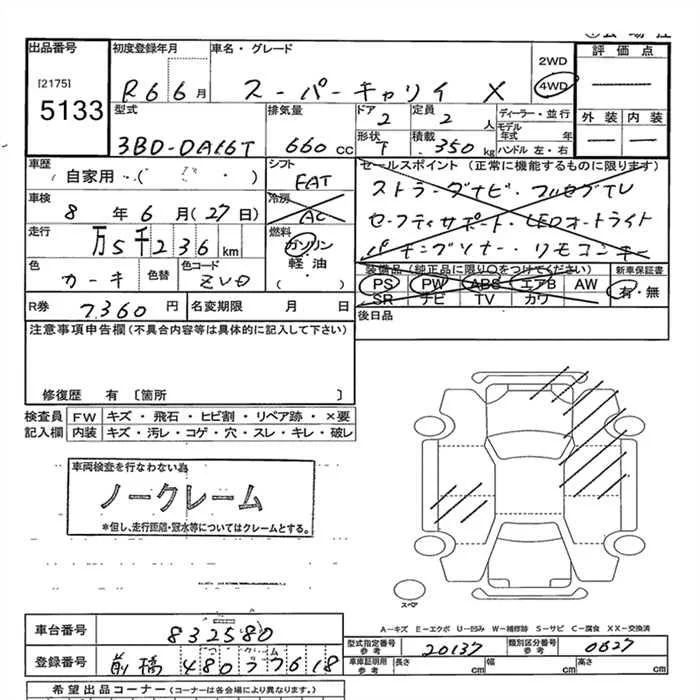 出品番号
[2175]
5133
初度登録年月
R6 6月
車名・グレード
スーパーキャリイ X
2WD
4WD
評価点
型式
3BD-DA16T
排気量
660 cc
ドア
2
定員
2 人
形状
T
積載
350 kg
ディーラー・並行
モデル年式 年
ハンドル 左・右
外装 内装
車歴
自家用 ( )
シフト
FAT
冷房
AC
セールスポイント (正常に機能するものに限ります)
ストラーダナビ・フルセグTV
セーフティサポート・LEDオートライト
パーキングソナー・リモコンキー
車検
8年6月(27日)
走行
万5千236km
燃料
ガソリン
軽・油
( ・ )
色
カーキ
色替
色コード
ZVD
装備品 (純正品に限り○をつけてください)
PS PW ABS エアB AW
SR ナビ TV カワ
新車保証書
有・無
R券
7360円
名変期限 月 日
後日品
注意事項申告欄 (不具合内容等は具体的に記入して下さい)
修復歴 有 〔箇所 〕
検査員
記入欄
FW キズ・飛石・ヒビ割・リペア跡・×要
内装 キズ・汚レ・コゲ・穴・スレ・キレ・破レ
車両検査を行なわない為
ノークレーム
*但し、走行距離・冠水等についてはクレームとする。
スペア
A－キズ E－エクボ U－凹み W－補修跡 S－サビ C－腐食 XX－交換済
車台番号
832580
登録番号
前橋 480 う 7618
型式指定番号 参考
20137
類別区分番号 参考
0627
車庫証明用 参考
長さ cm 幅 cm 高さ cm
希望出品コーナー (コーナーは各会場により異なります。)